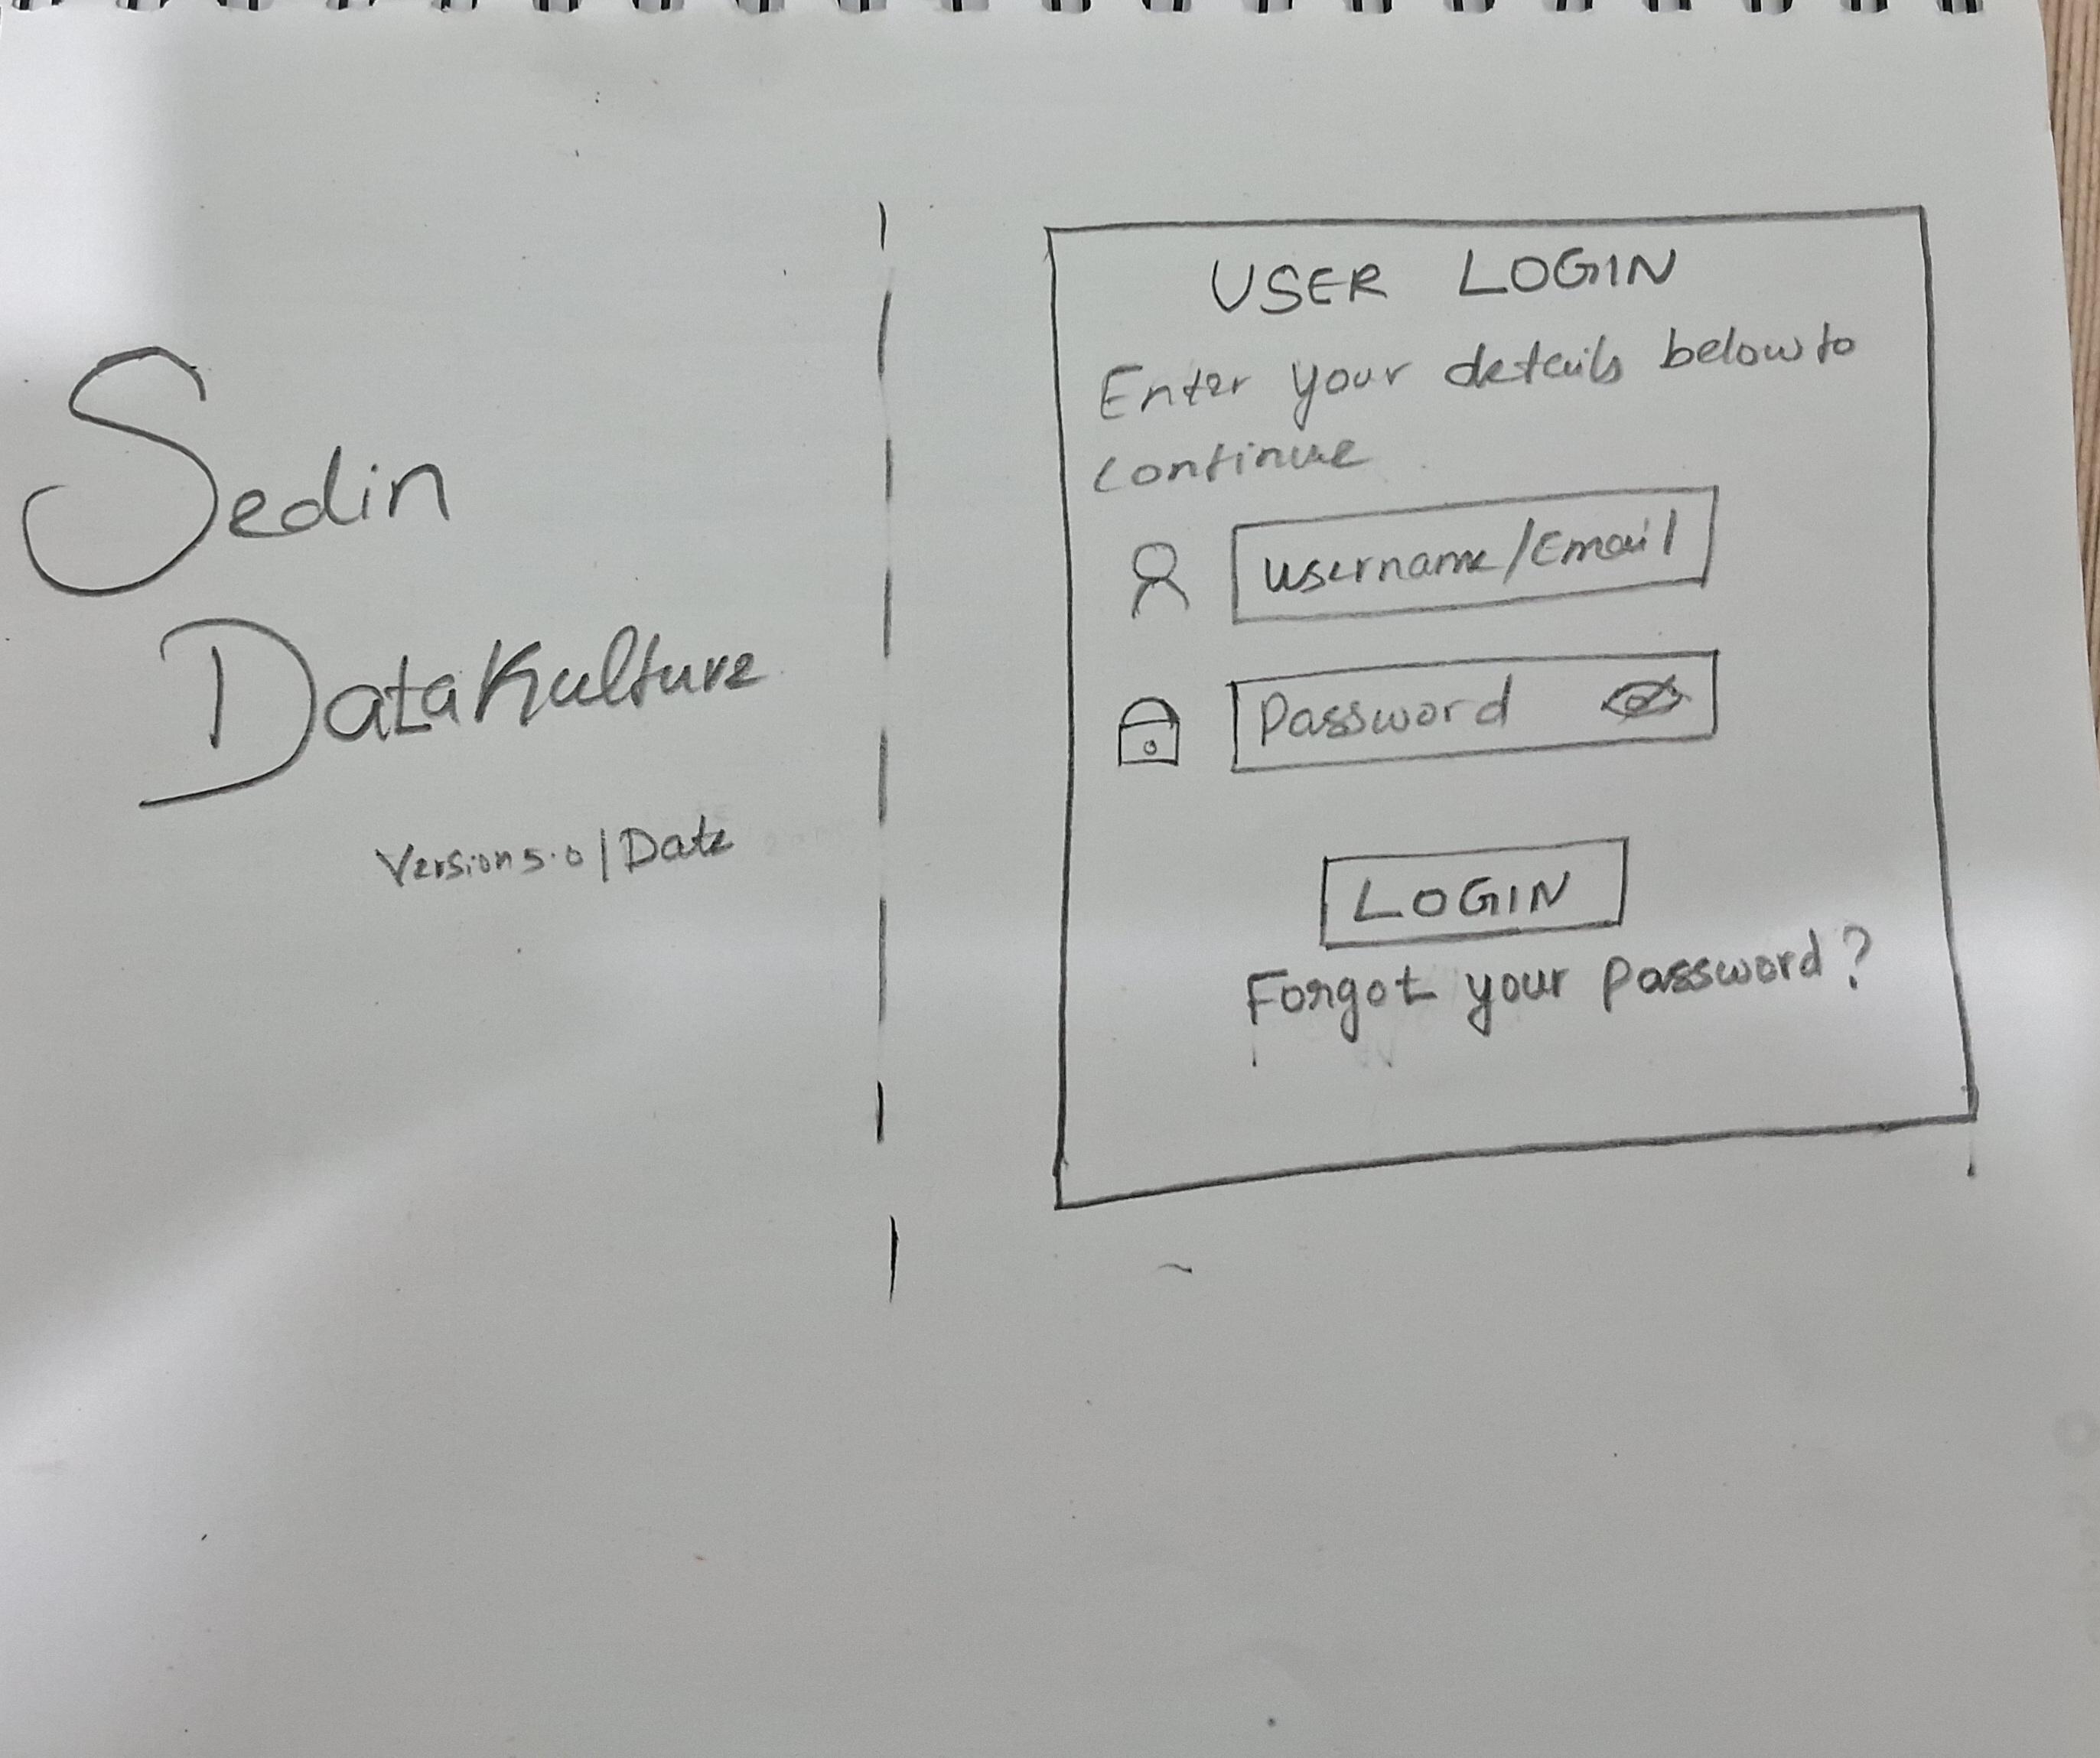 Sedin
DataKulture
Version 5.0 | Date
USER LOGIN
Enter your details below to
continue
username/Email
Password
LOGIN
Forgot your password?